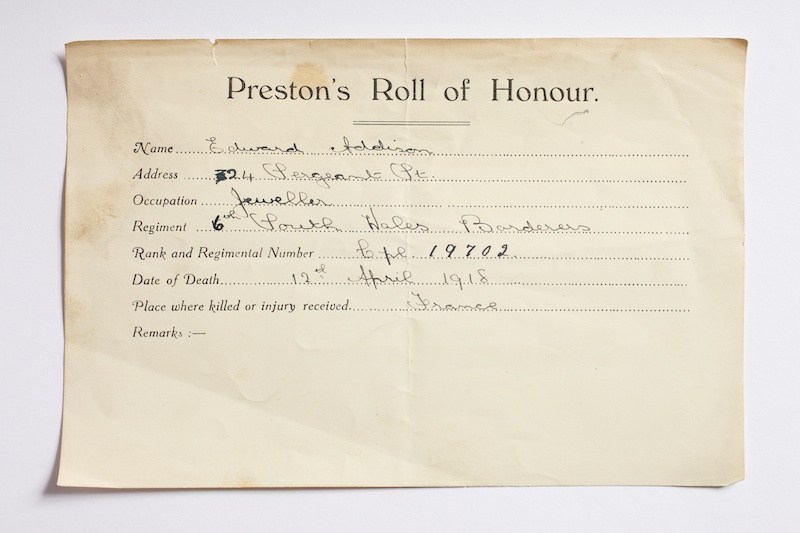 Preston's Roll of Honour.
Name Edward Addison
Address 24 Sergeant St.
Occupation Jeweller
Regiment 6th South Wales Borderers
Rank and Regimental Number Cpl. 19702.
Date of Death 12th April 1918
Place where killed or injury received. France
Remarks :—